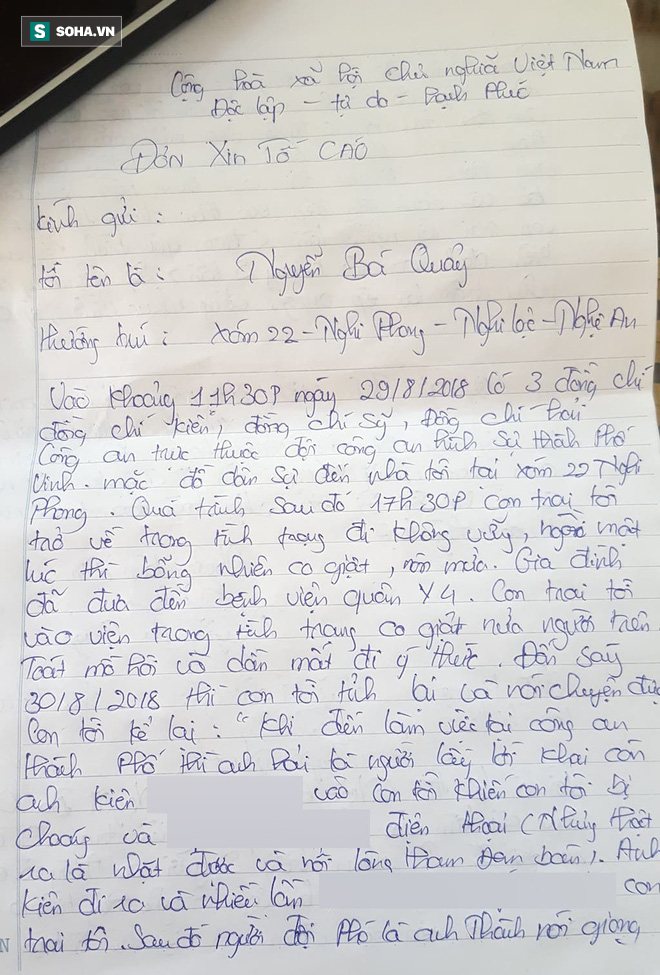 SOHA.VN
Cộng hoà xã hội chủ nghĩa Việt Nam
Độc lập - tự do - Hạnh Phúc
ĐƠN XIN TỐ CÁO
Kính gửi :
tôi tên là : Nguyễn Bá Quảy
thường trú : xóm 22 - Nghi Phong - Nghi Lộc - Nghệ An
Vào khoảng 11h30P ngày 29/8/2018 Có 3 đồng chí
đồng chí kiên, đồng chí sỹ, đồng chí hải
Công an trực thuộc đội công an hình sự thành phố
Vinh. mặc đồ dân sự đến nhà tôi tại xóm 22 Nghi
Phong. Quá trình sau đó 17h30P con trai tôi
trở về trong tình trạng đi không vững, ngồi một
lúc thì bỗng nhiên co giật, nôn mửa. Gia đình
đã đưa đến bệnh viện quân Y4. Con trai tôi
vào viện trong tình trạng co giật nửa người trên
Toát mồ hôi và dần mất đi ý thức. Đến sáng
30/8/2018 thì con tôi tỉnh lại và nói chuyện được
Con tôi kể lại : "Khi đến làm việc tại công an
thành phố thì anh hải là người lấy lời khai còn
anh kiên vào con tôi khiến con tôi bị
choáng và điện thoại (Nhưng thật
ra là nhặt được và nói lòng tham đem bán). Anh
kiên đi ra và nhiều lần con
trai tôi. Sau đó người đội phó là anh Thành nói giọng